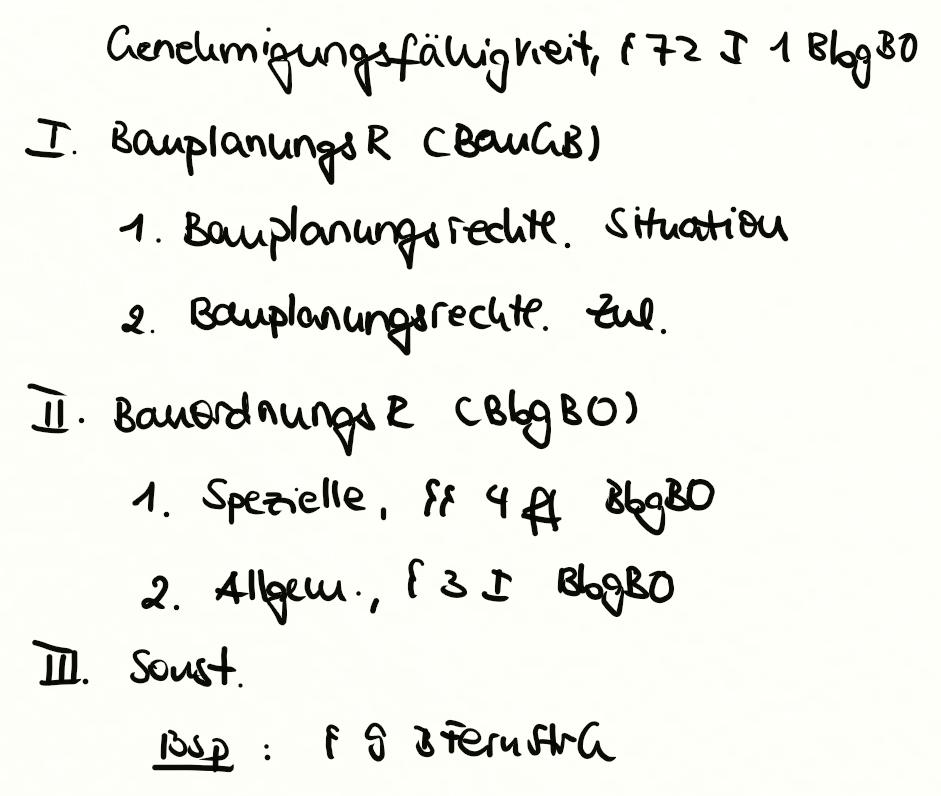 Genehmigungsfähigkeit, § 72 I 1 BbgBO
I. BauplanungsR (BauGB)
1. Bauplanungsrechtl. Situation
2. Bauplanungsrechtl. Zul.
II. BauordnungsR (BbgBO)
1. Spezielle, §§ 4 ff BbgBO
2. Allgem., § 3 I BbgBO
III. Sonst.
Bsp : § 9 BFernStrG